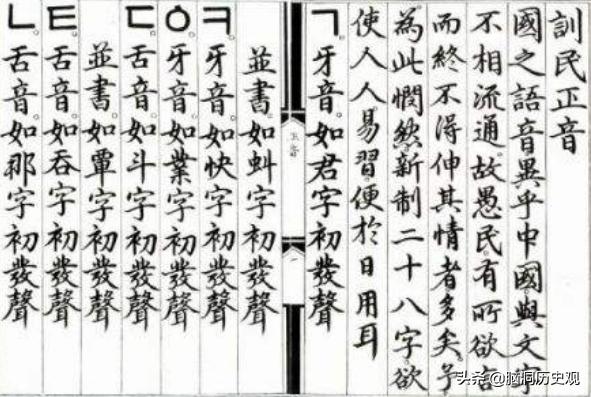 訓民正音
國之語音。異乎中國。與文字
不相流通。故愚民。有所欲言
而終不得伸其情者多矣。予
為此憫然。新制二十八字。欲
使人人。易習。便於日用耳
ㄱ。牙音。如君字初發聲
正音
一
並書。如虯字初發聲
ㅋ。牙音。如快字初發聲
ㆁ。牙音。如業字初發聲
ㄷ。舌音。如斗字初發聲
並書。如覃字初發聲
ㅌ。舌音。如吞字初發聲
ㄴ。舌音。如那字初發聲
头条 @脑洞历史观